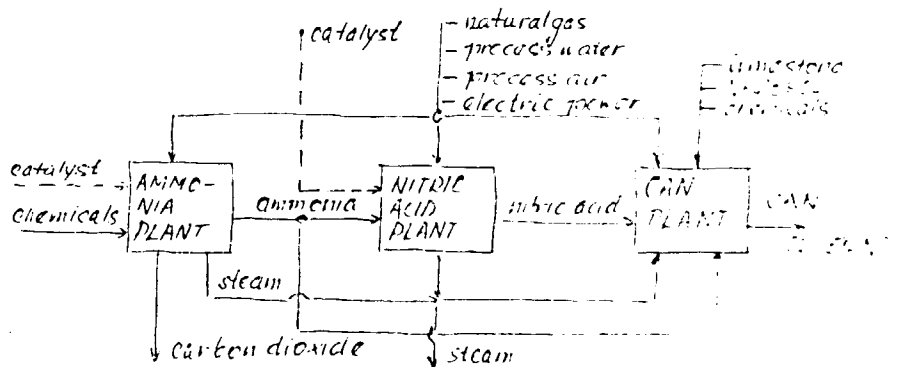 catalyst
naturalgas
process water
process air
electric power
limestone
catalyst
chemicals
AMMO-
NIA
PLANT
ammonia
NITRIC
ACID
PLANT
nitric acid
CAN
PLANT
CAN
steam
carbon dioxide
steam